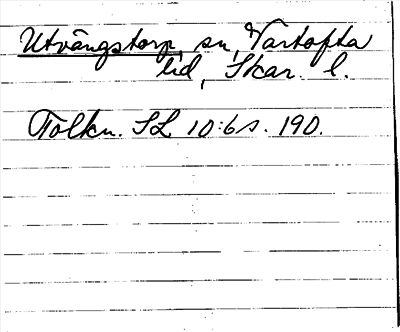 Utvängstorp, sn, Vartofta
hd, Skar. l.
Tolkn. SL 10:6 s. 190.